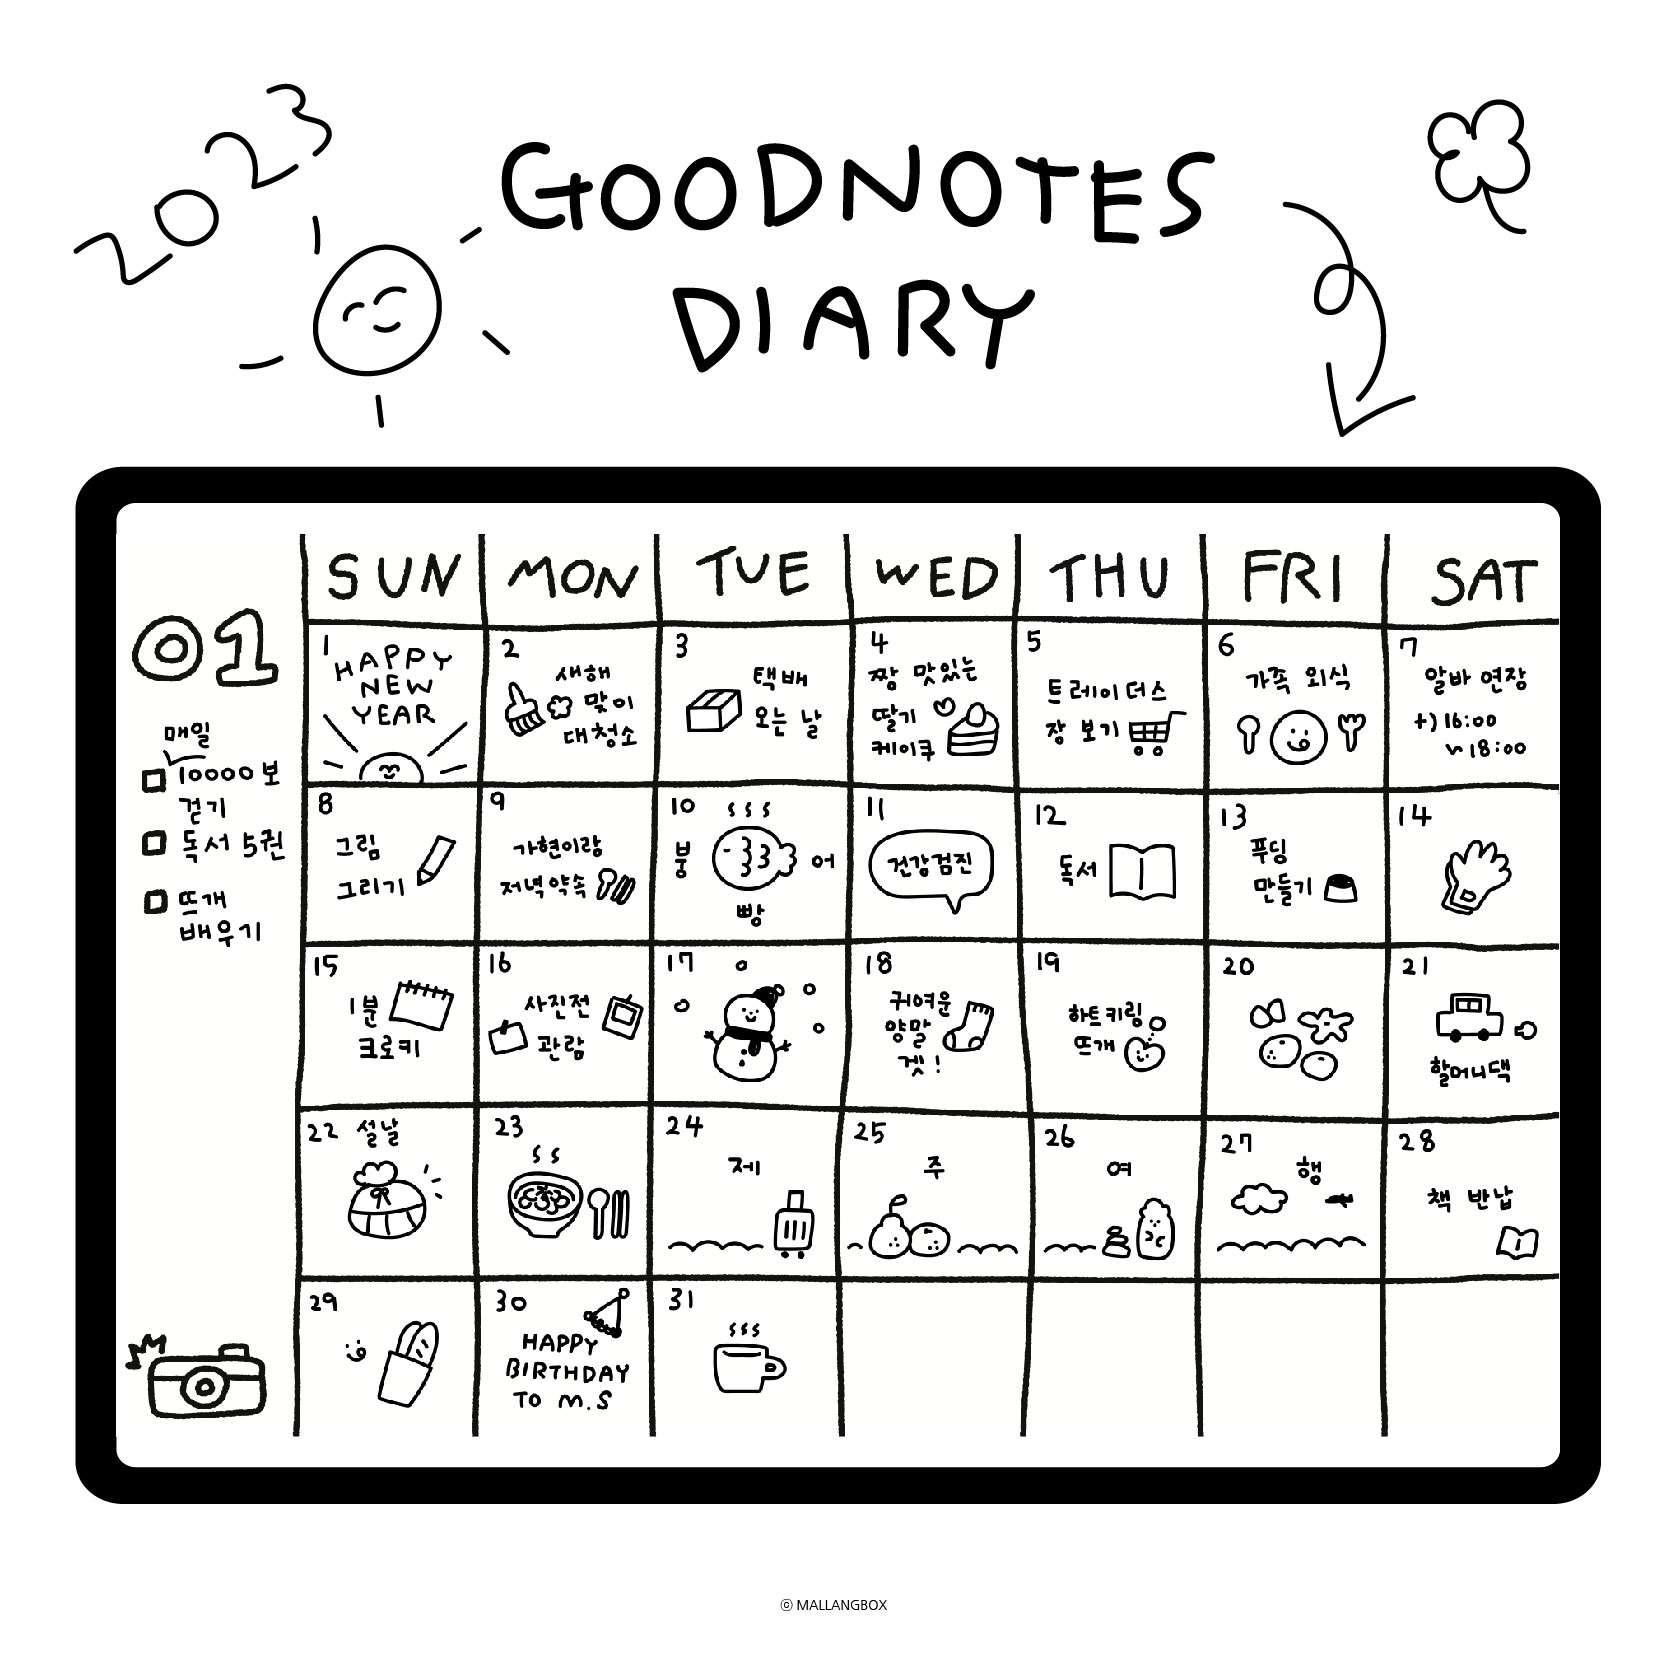 2023
GOODNOTES
DIARY
SUN MON TUE WED THU FRI SAT
01
매일
10000보
걷기
독서 5권
뜨개
배우기
1
HAPPY
NEW
YEAR
2
새해
맞이
대청소
3
택배
오는 날
4
짱 맛있는
딸기
케이크
5
트레이더스
장 보기
6
가족 외식
7
알바 연장
+) 16:00
~18:00
8
그림
그리기
9
가현이랑
저녁약속
10
붕
어
빵
11
건강검진
12
독서
13
푸딩
만들기
14
15
1분
크로키
16
사진전
관람
17
18
귀여운
양말
겟!
19
하트키링
뜨개
20
21
할머니댁
22 설날
23
24
제
25
주
26
여
27
행
28
책 반납
29
30
HAPPY
BIRTHDAY
TO M.S
31
ⓒ MALLANGBOX